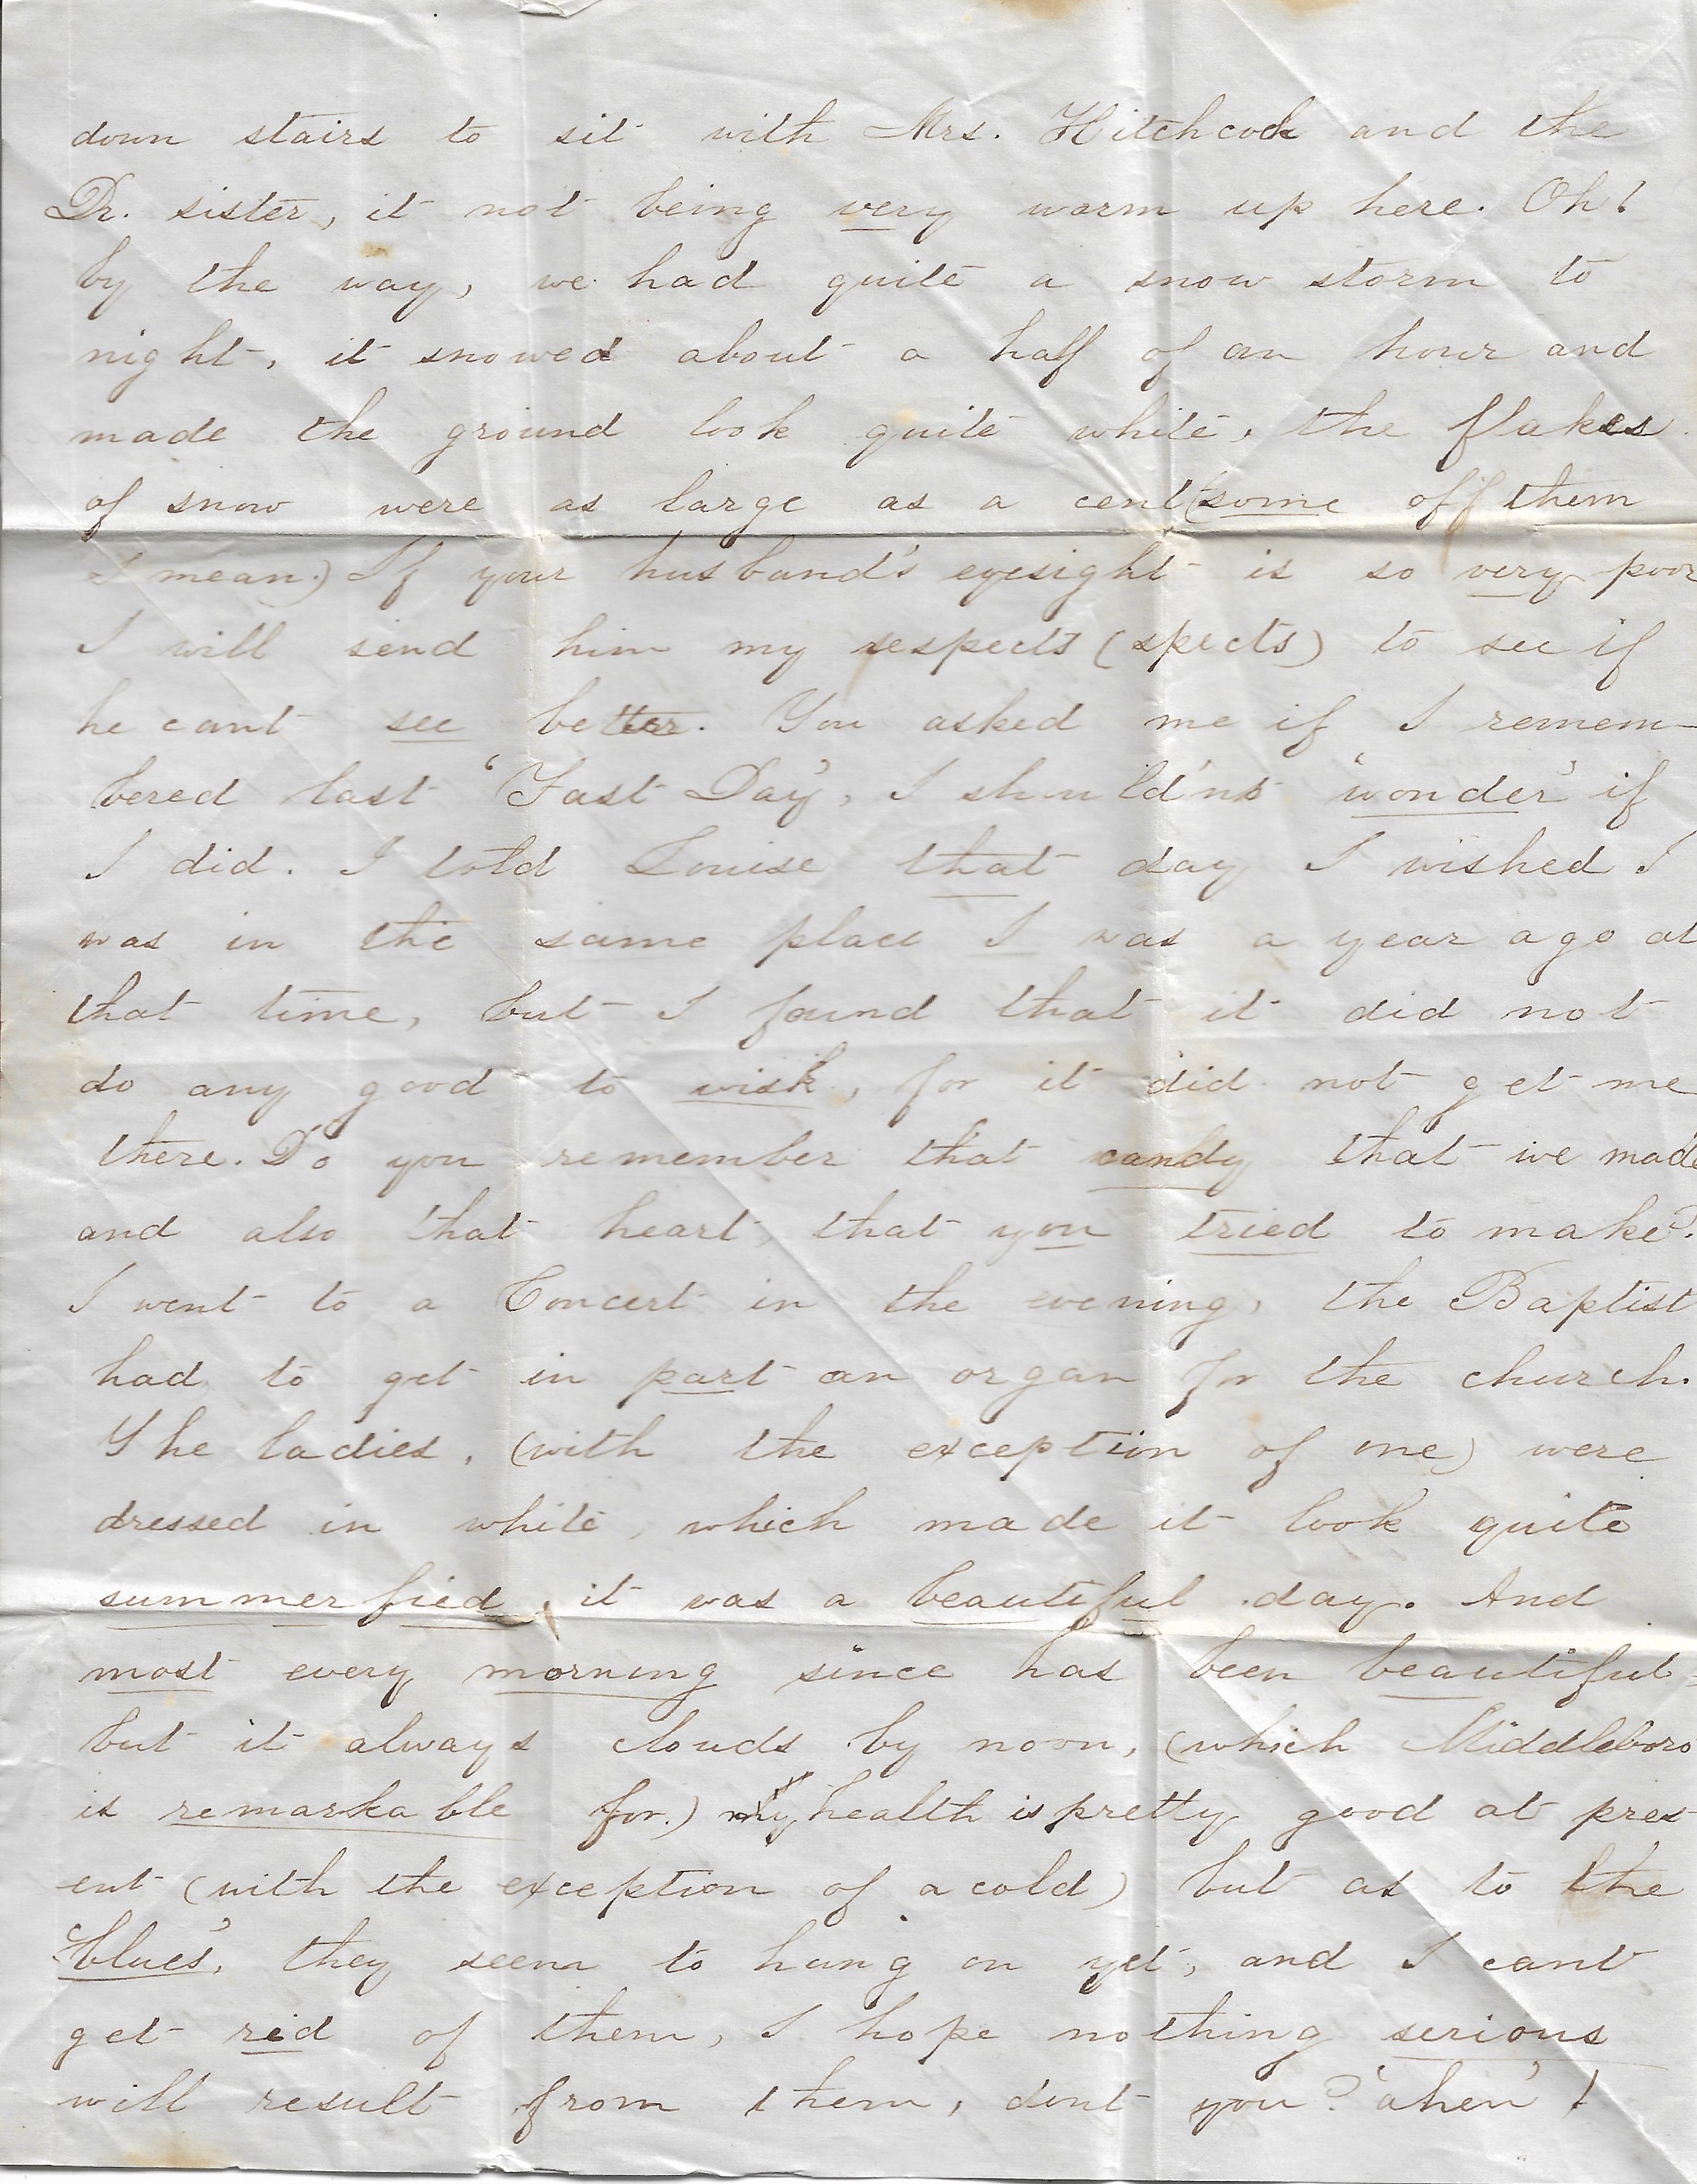 down stairs to sit with Mrs. Hitchcock and the
Dr. sister, it not being very warm up here. Oh!
by the way, we had quite a snow storm to
night, it snowed about a half of an hour and
made the ground look quite white, the flakes
of snow were as large as a cent (some off them
I mean.) If your husband's eyesight is so very poor
I will send him my respects (spects) to see if
he cant see better. You asked me if I remem-
bered last 'Fast Day', I should'nt 'wonder' if
I did. I told Louise that day I wished I
was in the same place I was a year ago at
that time, but I found that it did not
do any good to wish, for it did not get me
there. Do you remember that candy that we made
and also that heart, that you tried to make?
I went to a Concert in the evening, the Baptist
had to get in part an organ for the church.
The ladies, (with the exception of one) were
dressed in white, which made it look quite
summerfied, it was a beautiful day. And
most every morning since has been beautiful,
but it always clouds by noon, (which Middleboro
is remarkable for.) My health is pretty good at pres
ent (with the exception of a cold) but as to the
'blues', they seem to hang on yet, and I cant
get rid of them, I hope nothing serious
will result from them, dont you? 'ahen'!